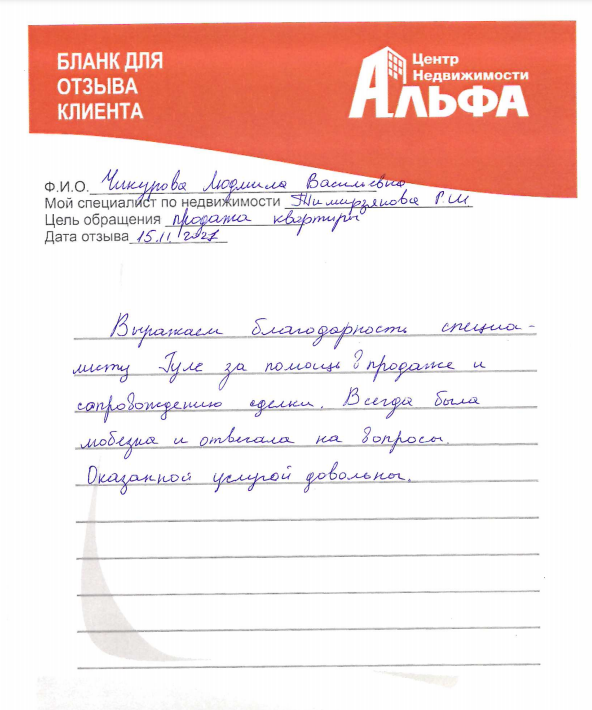 БЛАНК ДЛЯ
ОТЗЫВА
КЛИЕНТА
Центр
Недвижимости
АЛЬФА
Ф.И.О. Чикурова Людмила Васильевна
Мой специалист по недвижимости Тимирзянова Г.Ш
Цель обращения продажа квартиры
Дата отзыва 15.11.2021
Выражаем благодарность специа-
листу Гуле за помощь в продаже и
сопровождению сделки. Всегда была
любезна и отвечала на вопросы.
Оказанной услугой довольны.